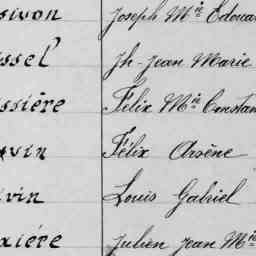 sivon Joseph Mie Édoua
ssel Jh-Jean Marie
ssiére Félix Mie Constan
uvin Félix Arsène
vin Louis Gabriel
xiére Julien Jean Mie